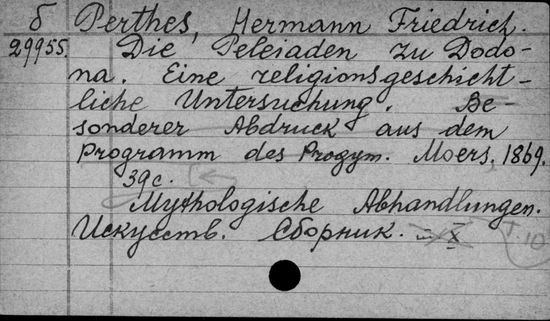 б Perthes, Hermann Friedrich.
29955. Die Peleiaden zu Dodo-
na. Eine religionsgeschicht-
liche Untersuchung. Be-
sonderer Abdruck aus dem
Programm des Progym. Moers, 1869.
39 c.
Mythologische Abhandlungen.
Искусств. Сборник. X
т. 10